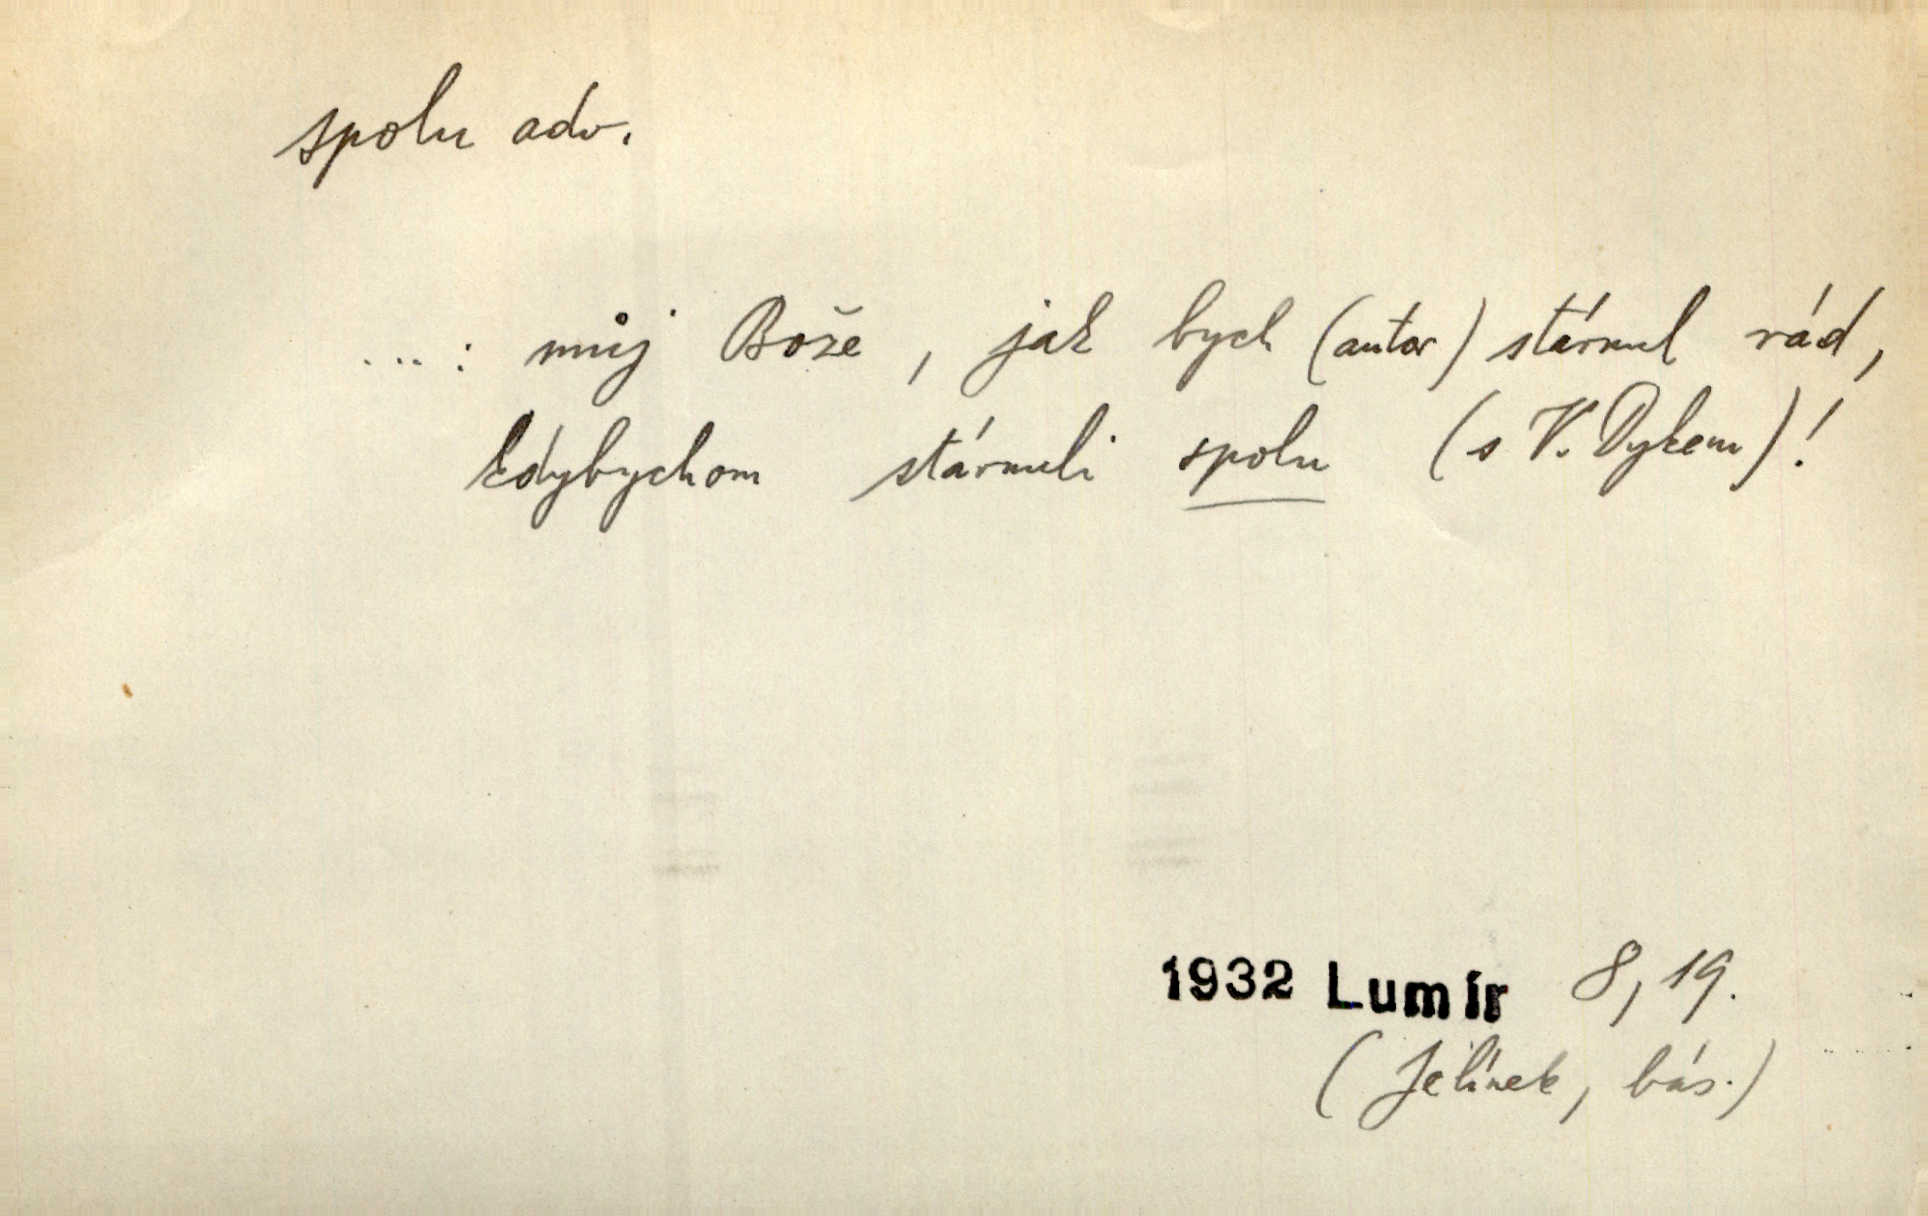 spolu adv.
...: můj Bože, jak bych (autor) stárnul rád,
kdybychom stárnuli spolu (s V. Dykem)!
1932 Lumír 8, 19.
(Jelínek, bás.)